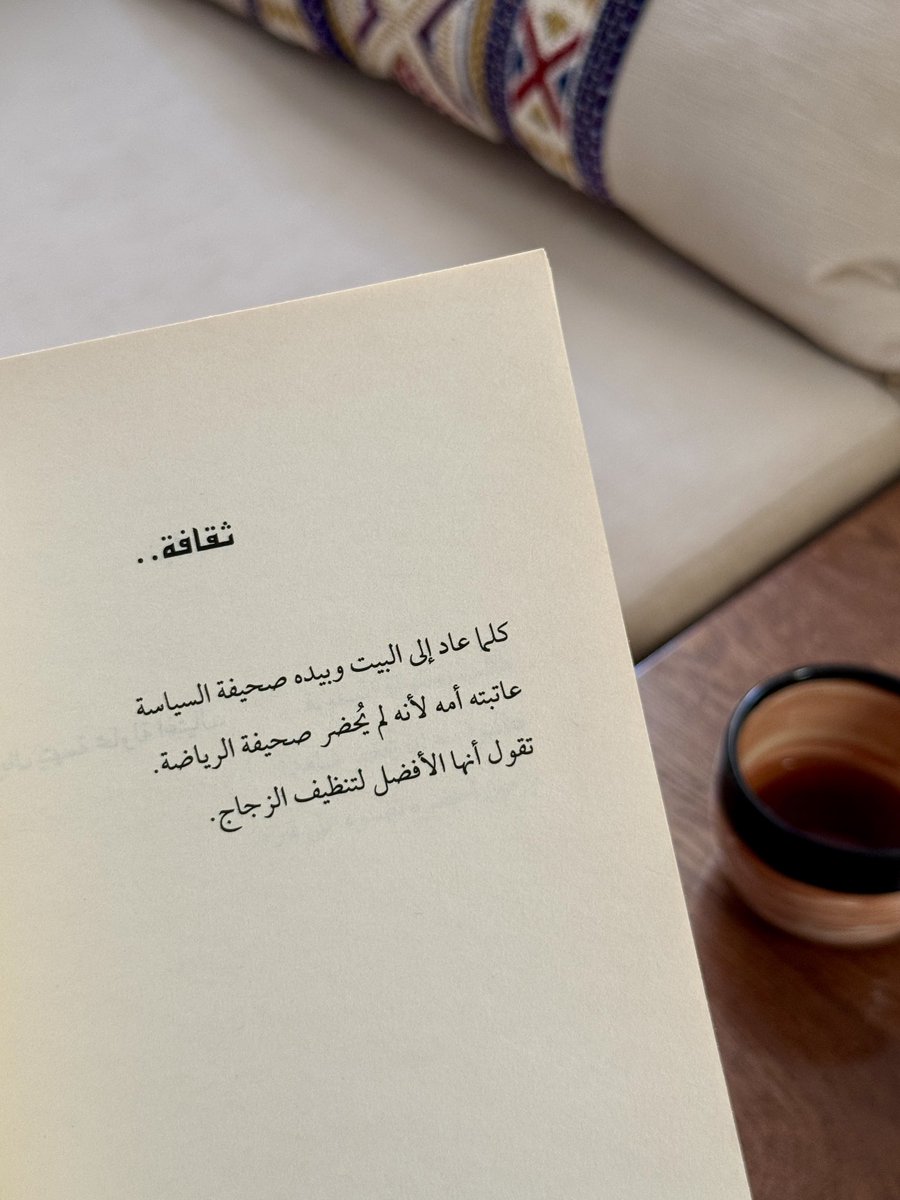 ثقافة..
كلما عاد إلى البيت وبيده صحيفة السياسة
عاتبته أمه لأنه لم يُحضر صحيفة الرياضة.
تقول أنها الأفضل لتنظيف الزجاج.